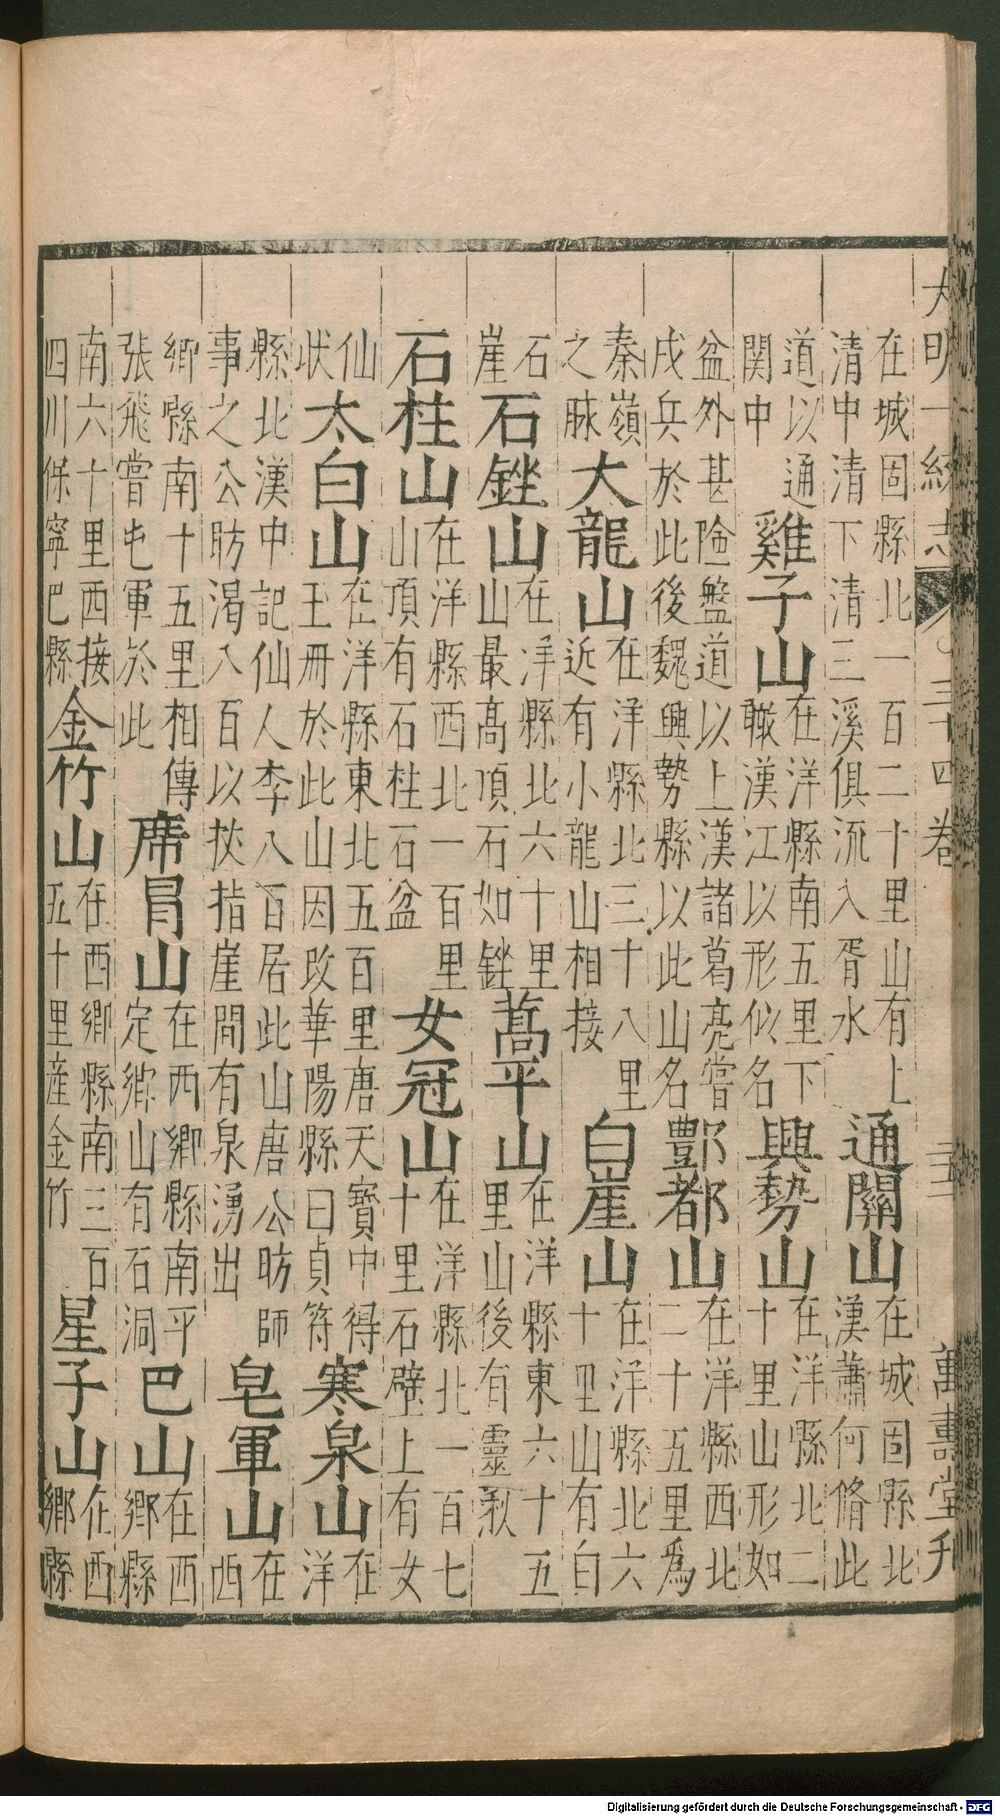 大明一統志 三十四卷 三五 萬壽堂刋
在城固縣北一百二十里山有上清中清下清三溪俱流入胥水 通關山 在城固縣北漢蕭何脩此
道以通關中 雞子山 在洋縣南五里下瞰漢江以形似名 興勢山 在洋縣北二十里山形如
盆外甚險盤道以上漢諸葛亮嘗戍兵於此後魏興勢縣以此山名 酆都山 在洋縣西北二十五里爲
秦嶺之脉 大龍山 在洋縣北三十八里近有小龍山相接 白崖山 在洋縣北六十里山有白
石崖 石銼山 在洋縣北六十里山最高頂石如銼 蒿平山 在洋縣東六十五里山後有靈湫
石柱山 在洋縣西北一百里山頂有石柱石盆 女冠山 在洋縣北一百七十里石壁上有女
仙狀 太白山 在洋縣東北五百里唐天寶中得玉冊於此山因改華陽縣曰貞符 寒泉山 在洋
縣北漢中記仙人李八百居此山唐公昉師事之公昉渴八百以杖指崖間有泉湧出 皂軍山 在西
鄉縣南十五里相傳張飛嘗屯軍於此 席冒山 在西鄉縣南平定鄉山有石洞 巴山 在西鄉縣
南六十里西接四川保寧巴縣 金竹山 在西鄉縣南三石五十里産金竹 星子山 在西鄉縣
Digitalisierung gefördert durch die Deutsche Forschungsgemeinschaft - DFG